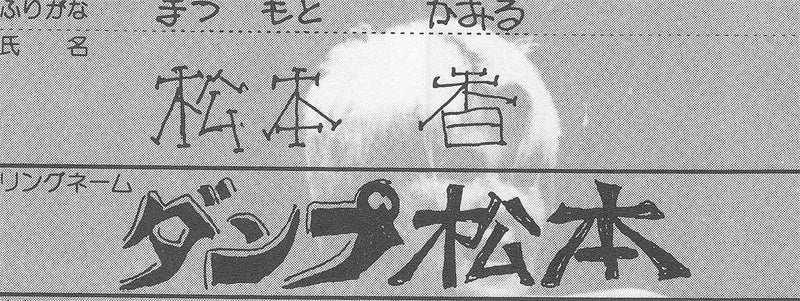 ふりがな まつ もと かおる
氏 名 松本 香
リングネーム ダンプ松本